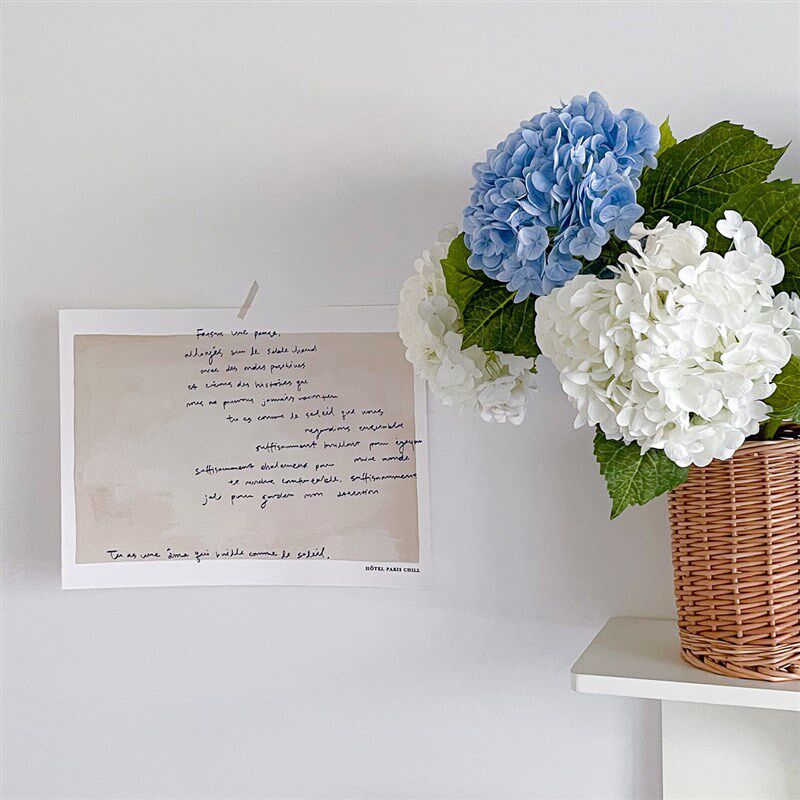 Faisons une pause,
allongés sur le sable chaud
avec des ondes positives
et créons des histoires que
nous ne pourrons jamais raconter
tu es comme le soleil que nous
regardons ensemble
suffisamment brillant pour égayer
suffisamment chaleureux pour notre monde
te rendre confortable. suffisamment
joli pour garder mon attention
Tu as une âme qui brille comme le soleil.
HÔTEL PARIS CHILL